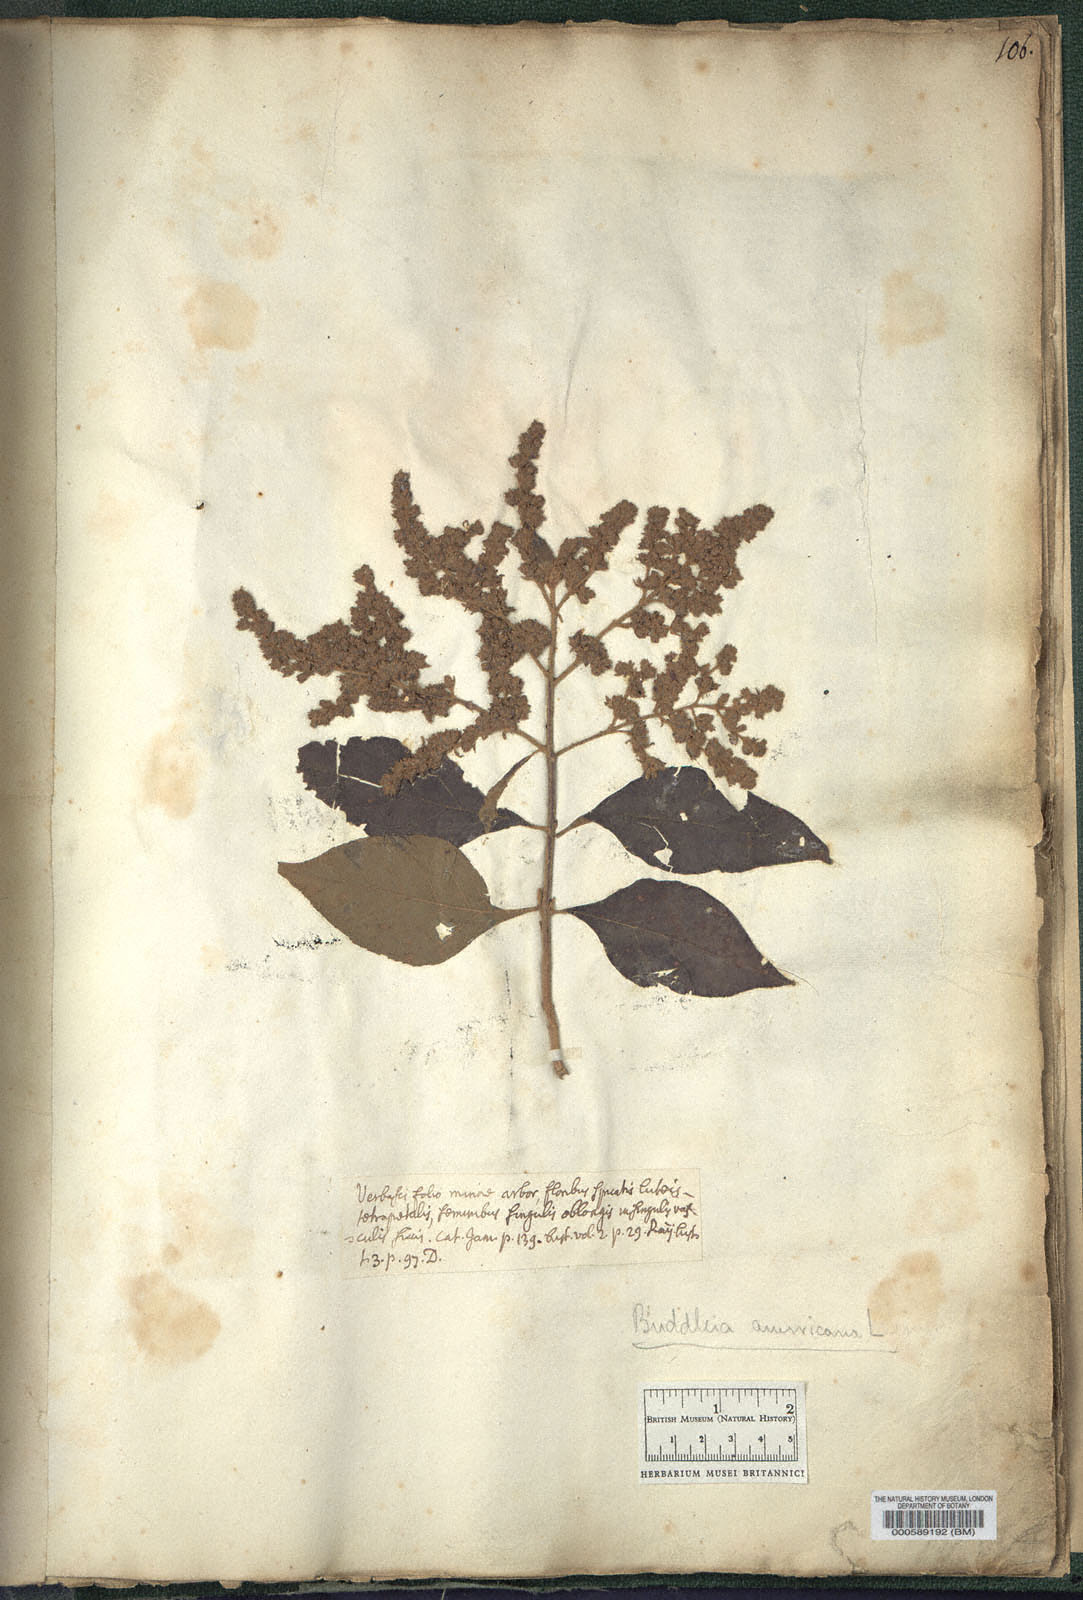 106.
Verbasci folio minore arbor, floribus spicatis luteis
tetrapetalis, seminibus singulis oblongis in singulis vas-
culis siccis. Cat. Jam. p. 139. hist. vol. 2. p. 29. Raij hist.
t. 3. p. 97. D.
Buddleia americana L
1 2
British Museum (Natural History)
1 2 3 4 5
HERBARIUM MUSEI BRITANNICI
THE NATURAL HISTORY MUSEUM, LONDON
DEPARTMENT OF BOTANY
000589192 (BM)